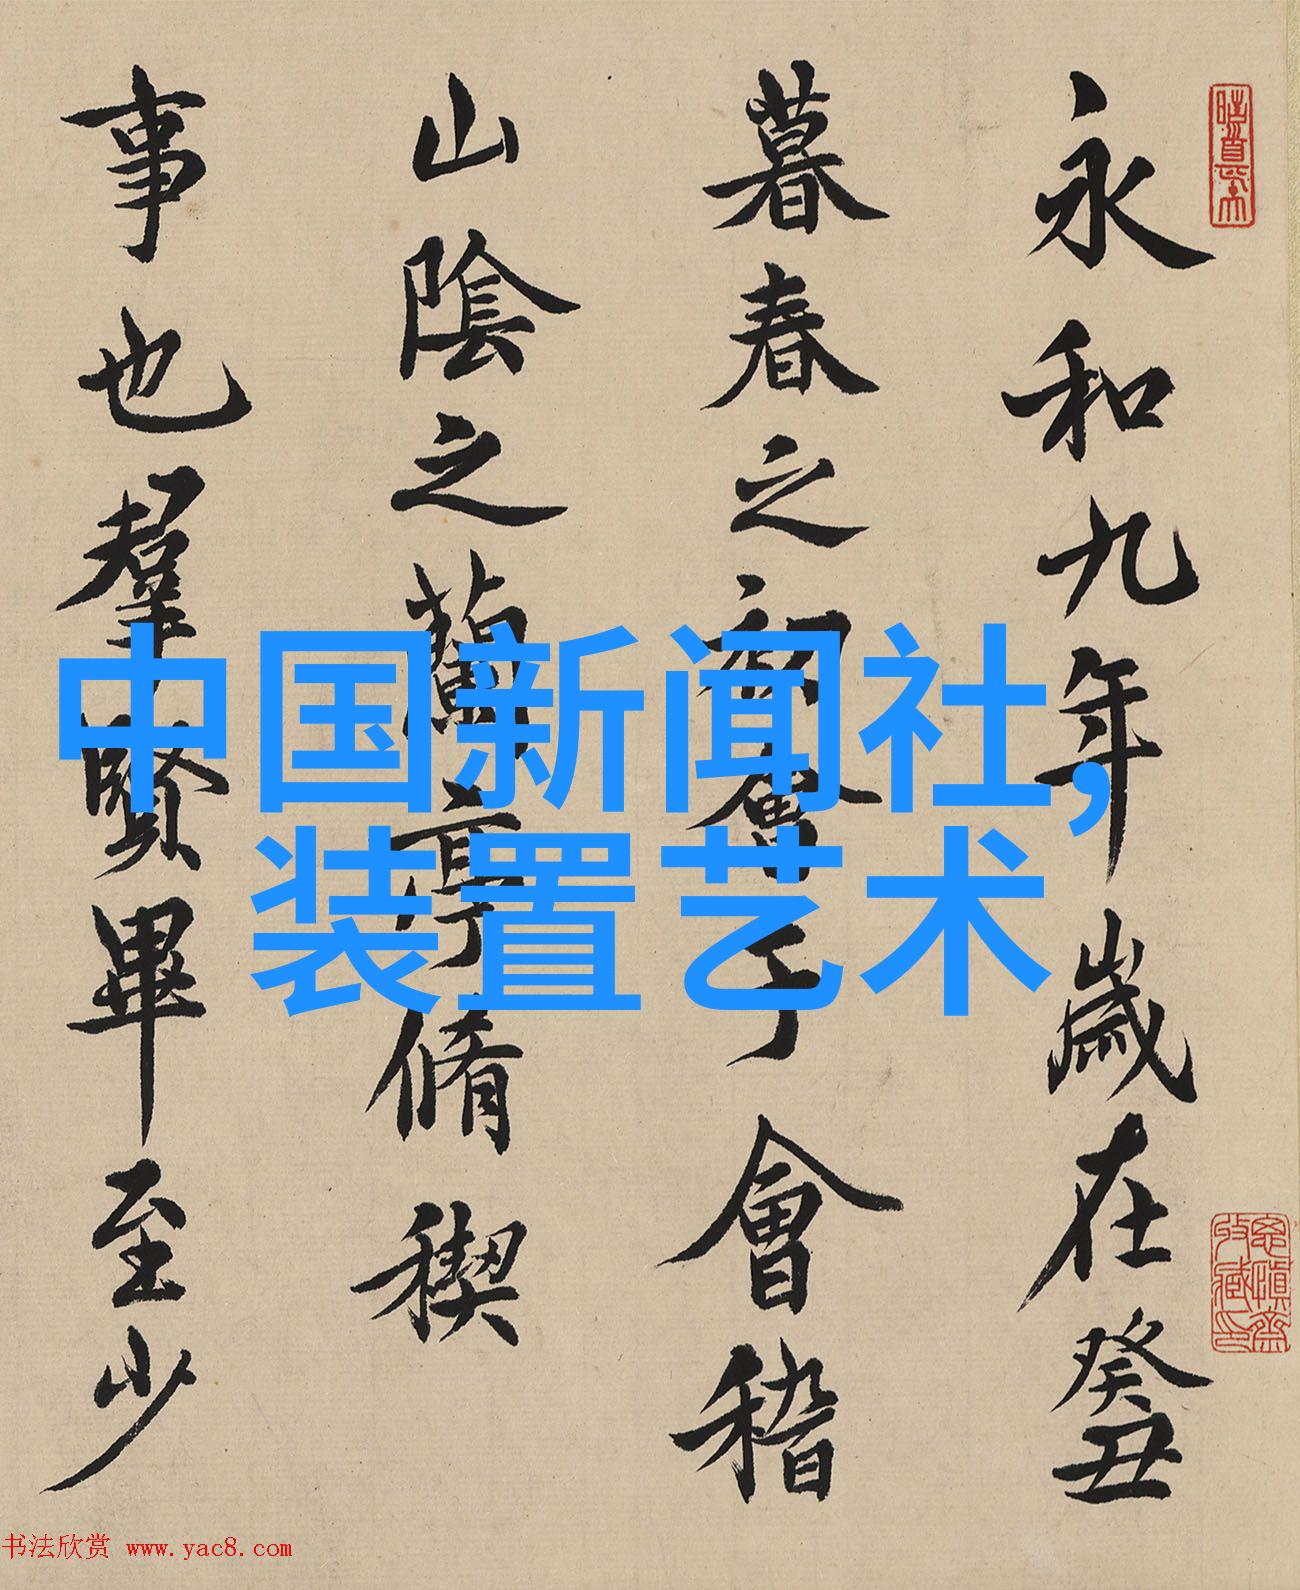 永和九年歲在癸丑
暮春之初會于會稽
山陰之蘭亭脩稧
事也羣賢畢至少
中国新闻社,
装置艺术
书法欣赏 www.yac8.com